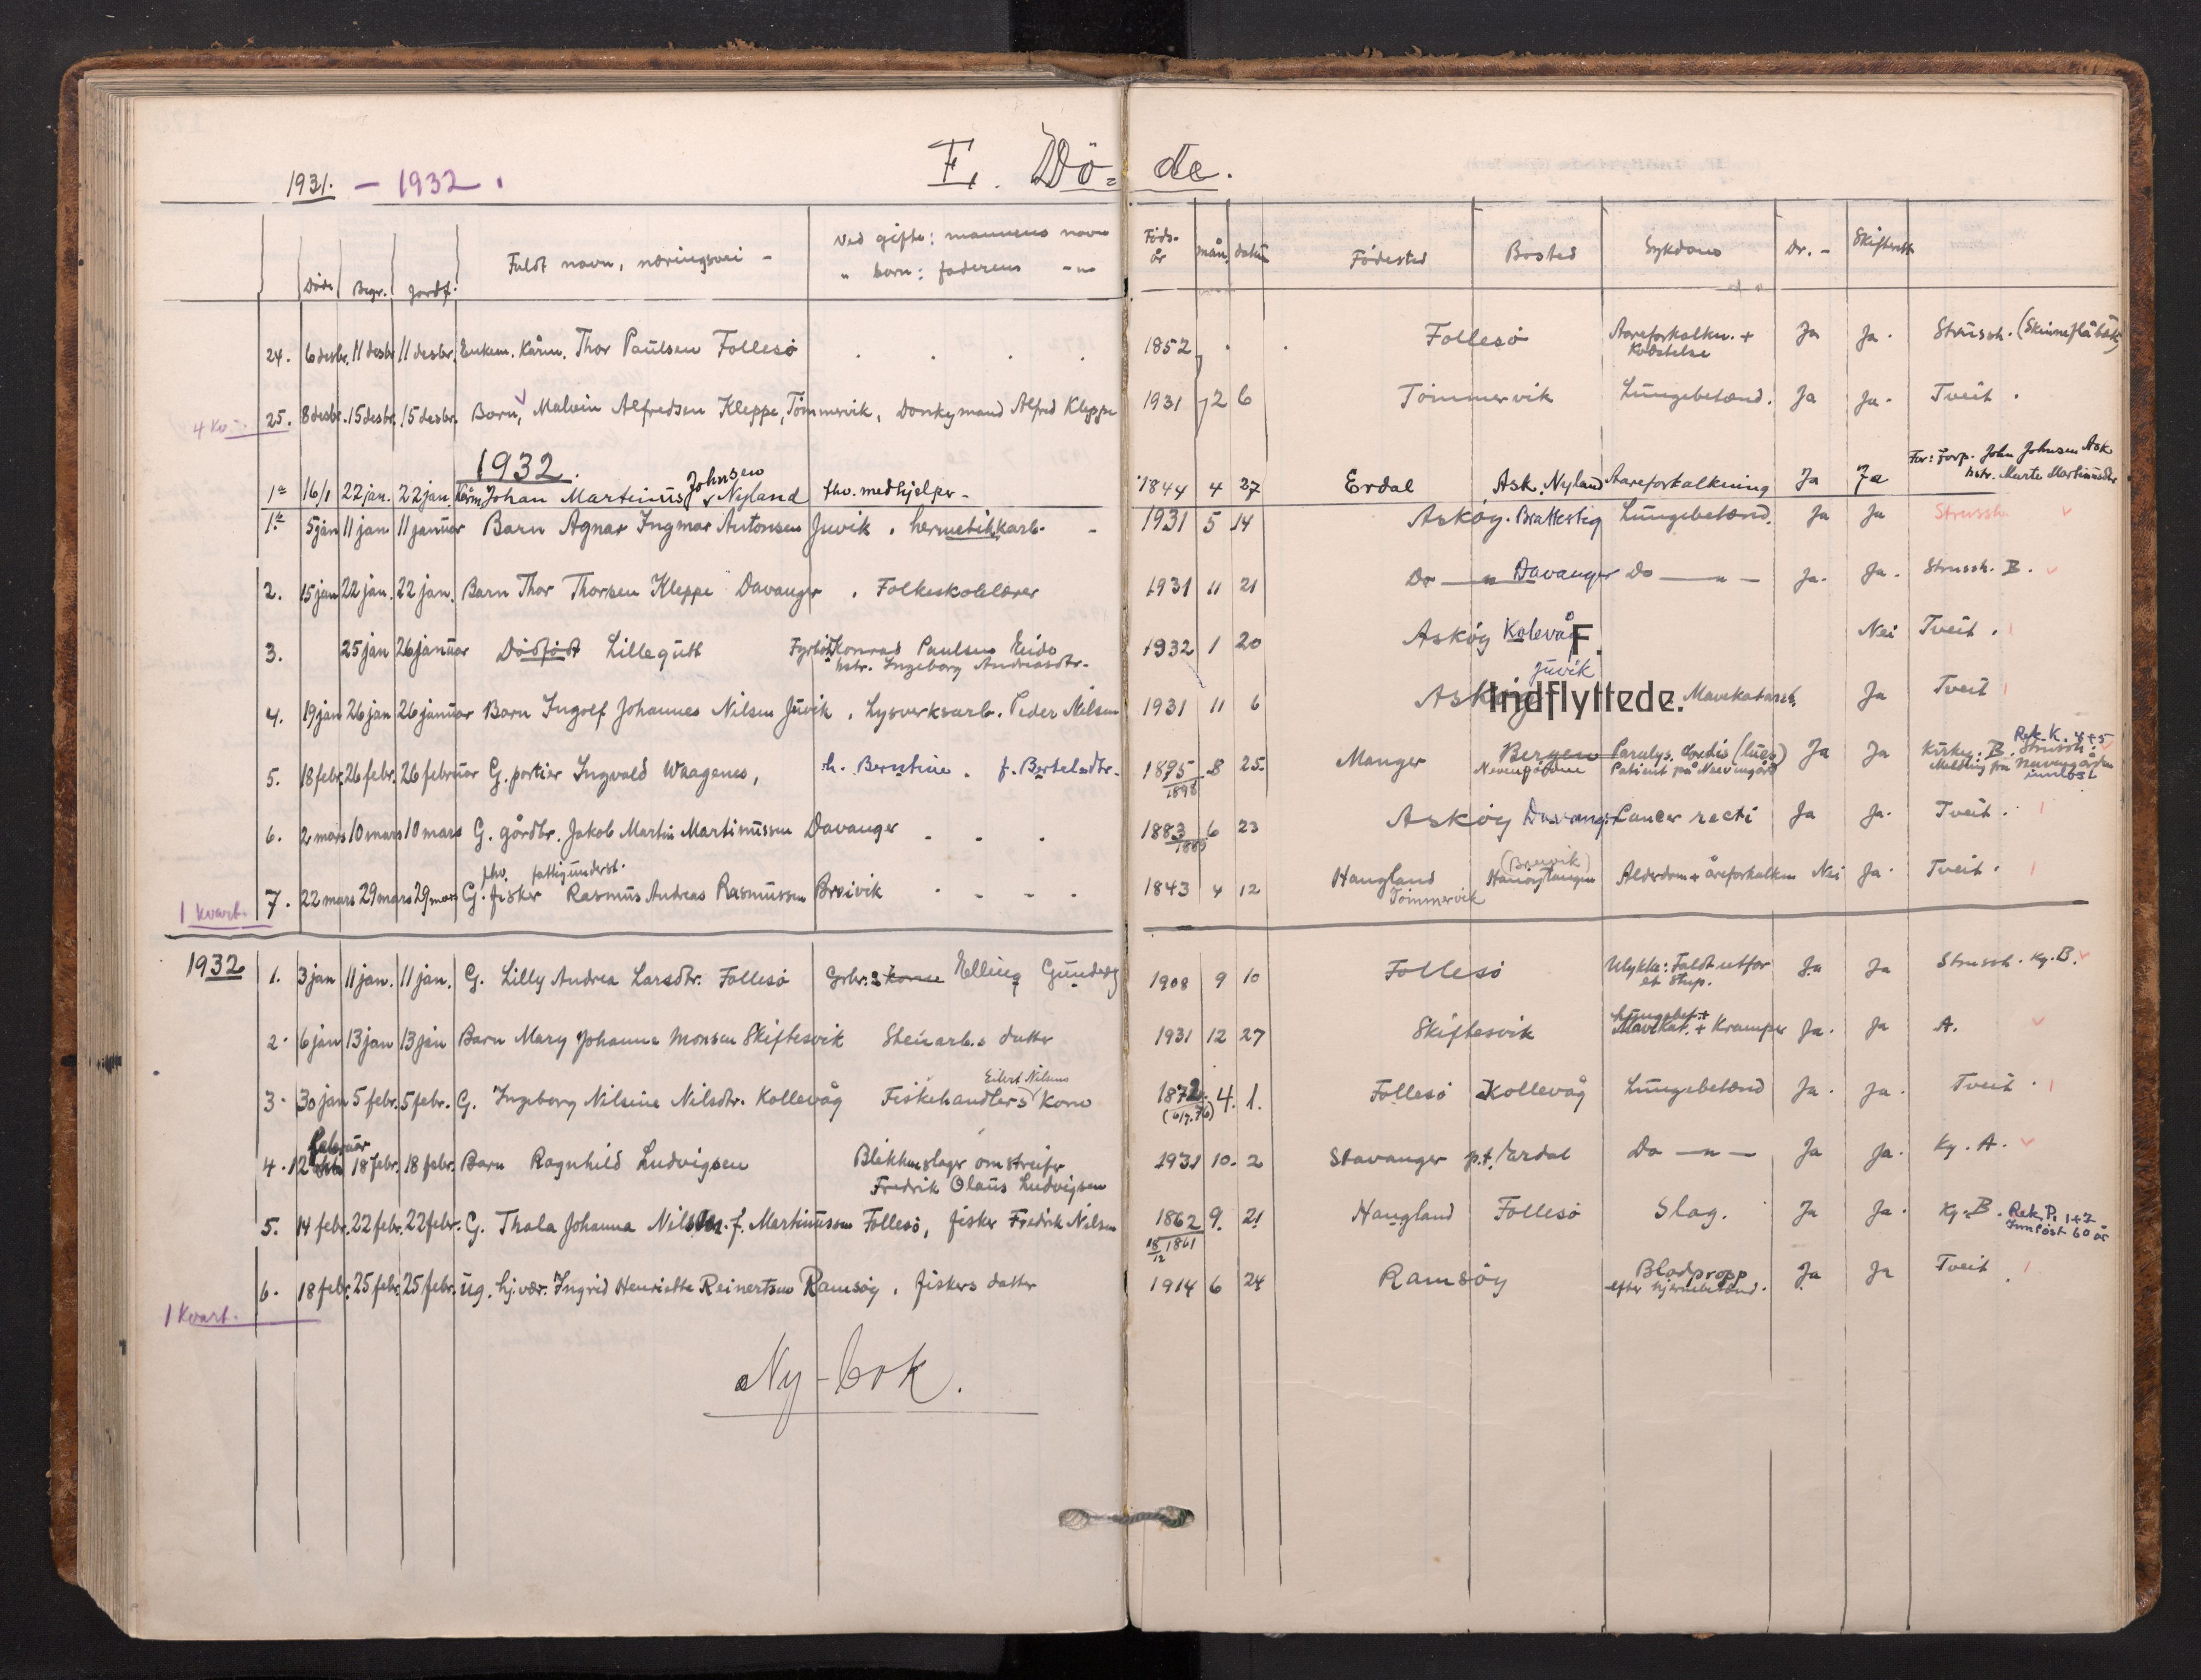 1931. – 1932.
E. Dö=de.
Døde Begr. Jordf. Fuldt navn, næringsvei – Ved gifte: mannens navn Føds-år mån. datum Fødested Bosted Sykdom Dr. – Skifterett
" barn: faderens –"–
24. 6 desbr. 11 desbr. 11 desbr. Enkem. Kårm. Thor Paulsen Follesö 1852 Follesö Aareforkalkn. + Ja Ja. Strussh. (Skinneflåbåt)
25. 8 desbr. 15 desbr. 15 desbr. Barn, Malvin Alfredsen Kleppe, Tömmervik, Donkymand Alfred Kleppe 1931 2 6 Tömmervik Lungebetænd. Ja Ja. Tveit.
4 Kv.
1932.
1a 16/1 22 jan. 22 jan. Kårm. Johan Martinus Johnsen Nyland fhv. medhjelper – 1844 4 27 Erdal Ask. Nyland Aareforkalkning Ja Ja For: Forp. John Johnsen Ask
hstr. Marte Martinusdtr
1b 5 jan 11 jan 11 januar Barn Agnar Ingmar Antonsen Juvik, hermetikkarb. – 1931 5 14 Asköy. Brattestig Lungebetænd. Ja Ja Strussh
2. 15 jan 22 jan. 22 jan. Barn Thor Thorsen Kleppe Davanger, Folkeskolelærer 1931 11 21 Do — " Davanger Do — " — Ja. Ja. Strussh. B.
3. 25 jan 26 januar Dödfödt Lillegutt Fyrböt. Konrad Paulsen Eide 1932 1 20 Asköy Kolevåg F. Nei Tveit.
hstr. Ingeborg Andreasdtr.
Juvik
4. 19 jan 26 jan 26 januar Barn Ingolf Johannes Nilsen Juvik, Lysverksarb. Peder Nilsen 1931 11 6 Asköy Indflyttede. Mavekatarrh. Ja Tveit
5. 18 febr. 26 febr. 26 februar G. portier Ingvald Waagenes, h. Berntine. f. Bertelsdtr. 1895 8 25. Manger Bergen Paralys. (lues) Ja Ja Kirkeg. B. Strussh. Rek. K. 4+5
1898 Nevengården Patient på Neevengård Melding fra Nevengården
6. 2 mars 10 mars 10 mars G. gårdbr. Jakob Martin Martinussen Davanger 1883 6 23 Asköy Davanger Cancer recti Ja Ja. Tveit.
fhv. fattigunderst.
7. 22 mars 29 mars 29 mars G. fisker Rasmus Andreas Rasmussen Breivik 1843 4 12 Haugland (Breivik) Hanöytangen Alderdom + åreforkalkn Nei Ja. Tveit.
Tömmervik
1 kvart.
1932 1. 3 jan 11 jan. 11 jan. G. Lilly Andrea Larsdtr. Follesö Grbr.s kone Elling 1908 9 10 Follesö Ulykke: Faldt utfor Ja Ja Strussh. Kg. B.
et stup.
2. 6 jan 13 jan 13 jan Barn Mary Johanne Monsen Skiftesvik Stenarb.s datter 1931 12 27 Skiftesvik Lungebet. + Mavekat. + Kramper Ja. Ja A.
3. 30 jan 5 febr. 5 febr. G. Ingeborg Nilsine Nilsdtr. Kollevåg Fiskehandlers Eilert Nilsens Kone 1872. 4. 1. Follesö Kollevåg Lungebetænd Ja. Ja. Tveit.
(6/7. 76)
4. 12 februar 18 febr. 18 febr. Barn Ragnhild Ludvigsen Blikkenslager omstreifer 1931 10. 2 Stavanger p.t. Erdal Do — " — Ja Ja. Kg. A.
Fredrik Olaus Ludvigsen
5. 14 febr. 22 febr. 22 febr. G. Thala Johanna Nilsen f. Martinussen Follesö, fisker Fredrik Nilsen 1862 9. 21 Haugland Follesö Slag. Ja Ja. Kg. B. Rek. P. 1+2
18/12 1861
6. 18 febr. 25 febr. 25 febr. ug. hj.vær. Ingrid Henriette Reinertsen Ramsöy, fiskers datter 1914 6 24 Ramsöy Blodpropp Ja Ja Tveit.
efter hjernebetænd.
1 Kvart.
Ny-bok.